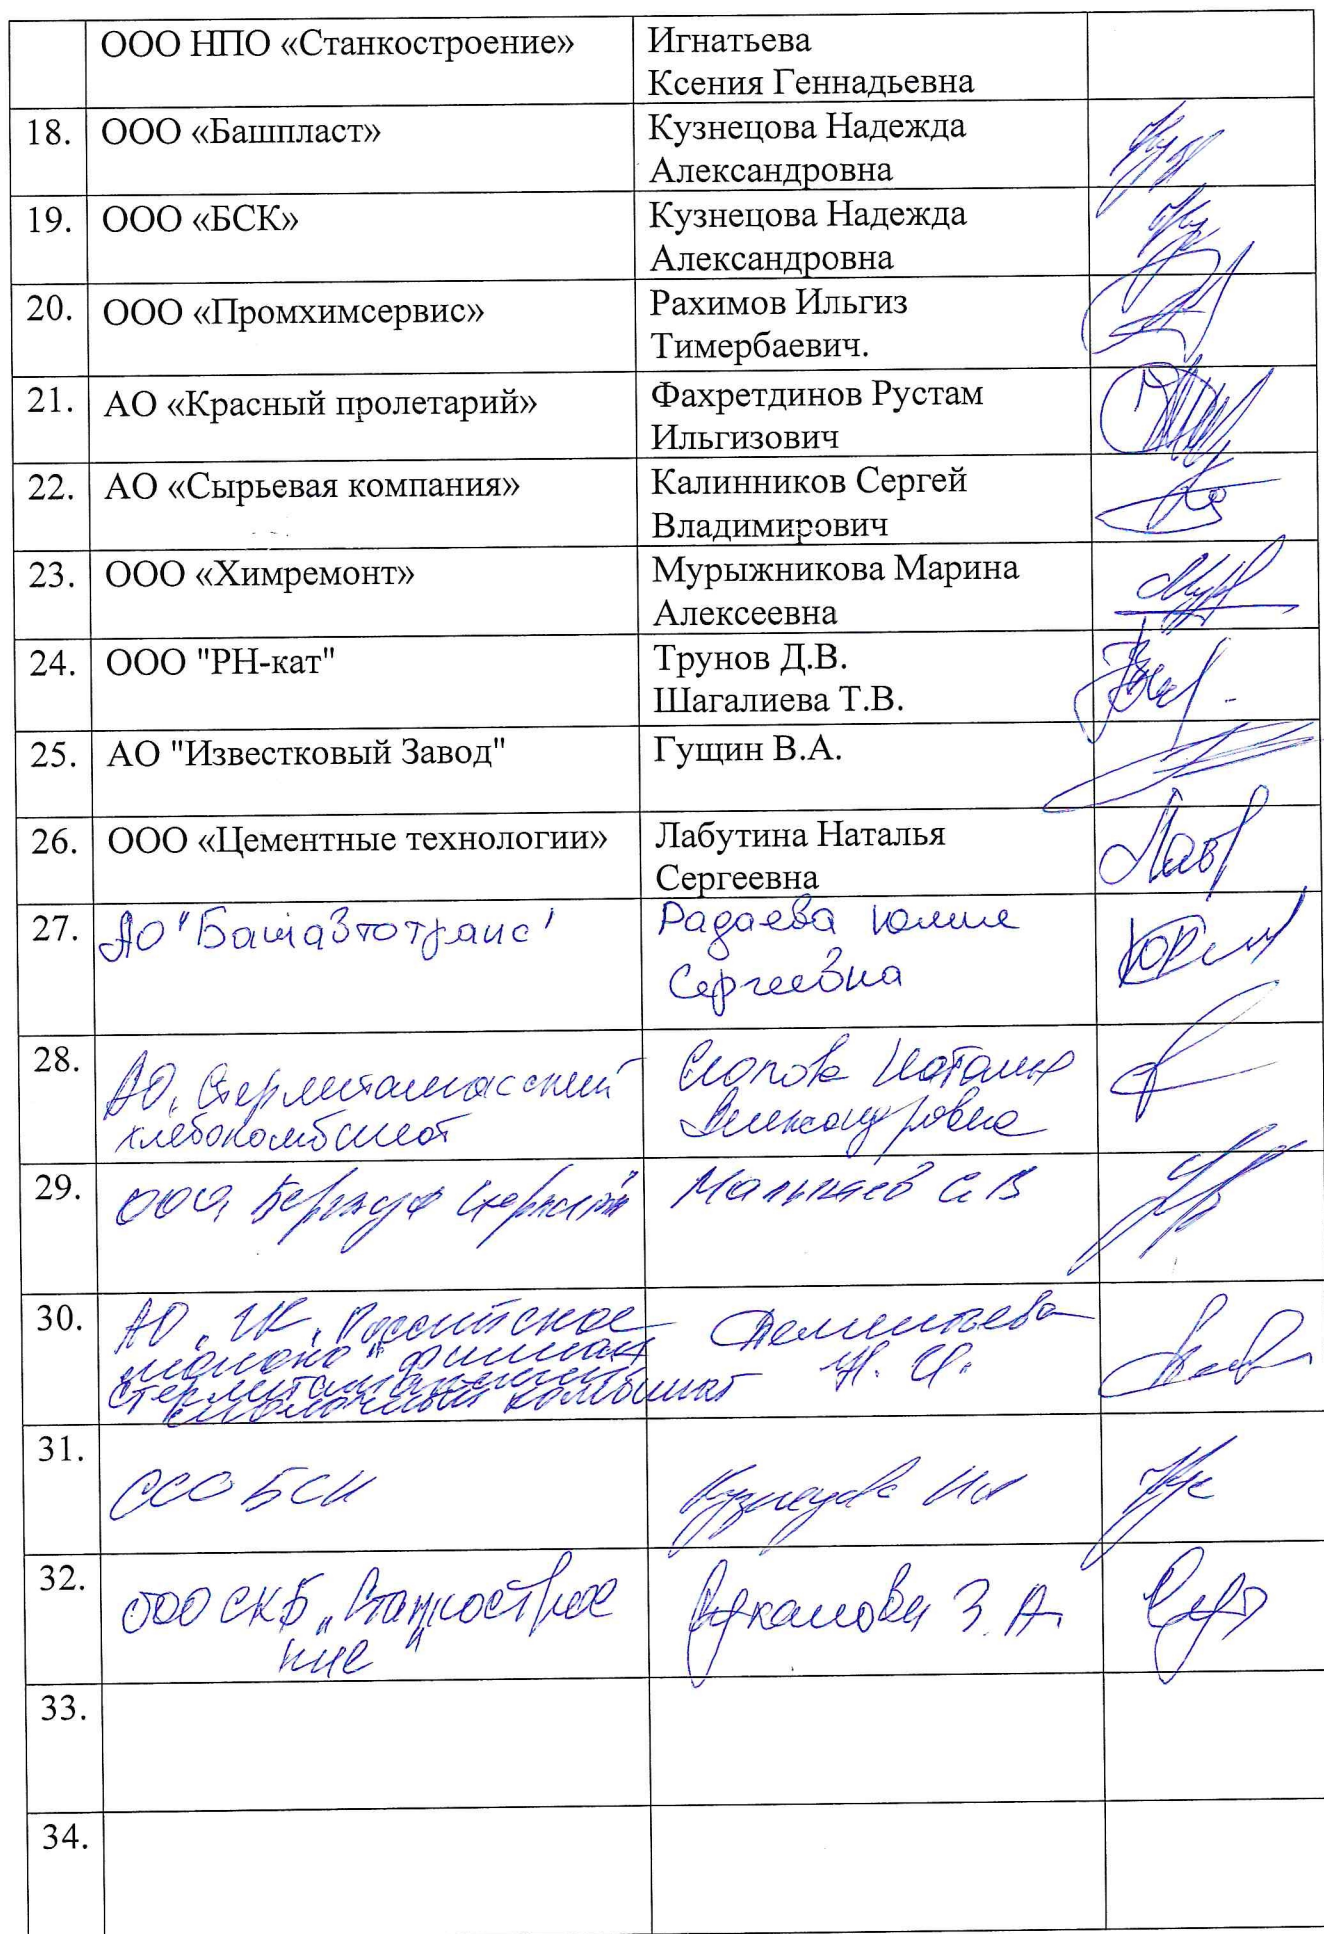 ООО НПО «Станкостроение»
Игнатьева
Ксения Геннадьевна
18.
ООО «Башпласт»
Кузнецова Надежда
Александровна
19.
ООО «БСК»
Кузнецова Надежда
Александровна
20.
ООО «Промхимсервис»
Рахимов Ильгиз
Тимербаевич.
21.
АО «Красный пролетарий»
Фахретдинов Рустам
Ильгизович
22.
АО «Сырьевая компания»
Калинников Сергей
Владимирович
23.
ООО «Химремонт»
Мурыжникова Марина
Алексеевна
24.
ООО "РН-кат"
Трунов Д.В.
Шагалиева Т.В.
25.
АО "Известковый Завод"
Гущин В.А.
26.
ООО «Цементные технологии»
Лабутина Наталья
Сергеевна
27.
АО "Башавтотранс"
Радаева Юлия
Сергеевна
28.
АО „Стерлитамакский
хлебокомбинат
Наталья
Александровна
29.
ООО
СВ
30.
АО „ГК „Российское
молоко" филиал
Стерлитамакский
молочный комбинат
Дементьева
Н. И.
31.
ООО БСК
Кузнецова НА
32.
ООО СКБ „Станкострое
ние"
З. А.
33.
34.